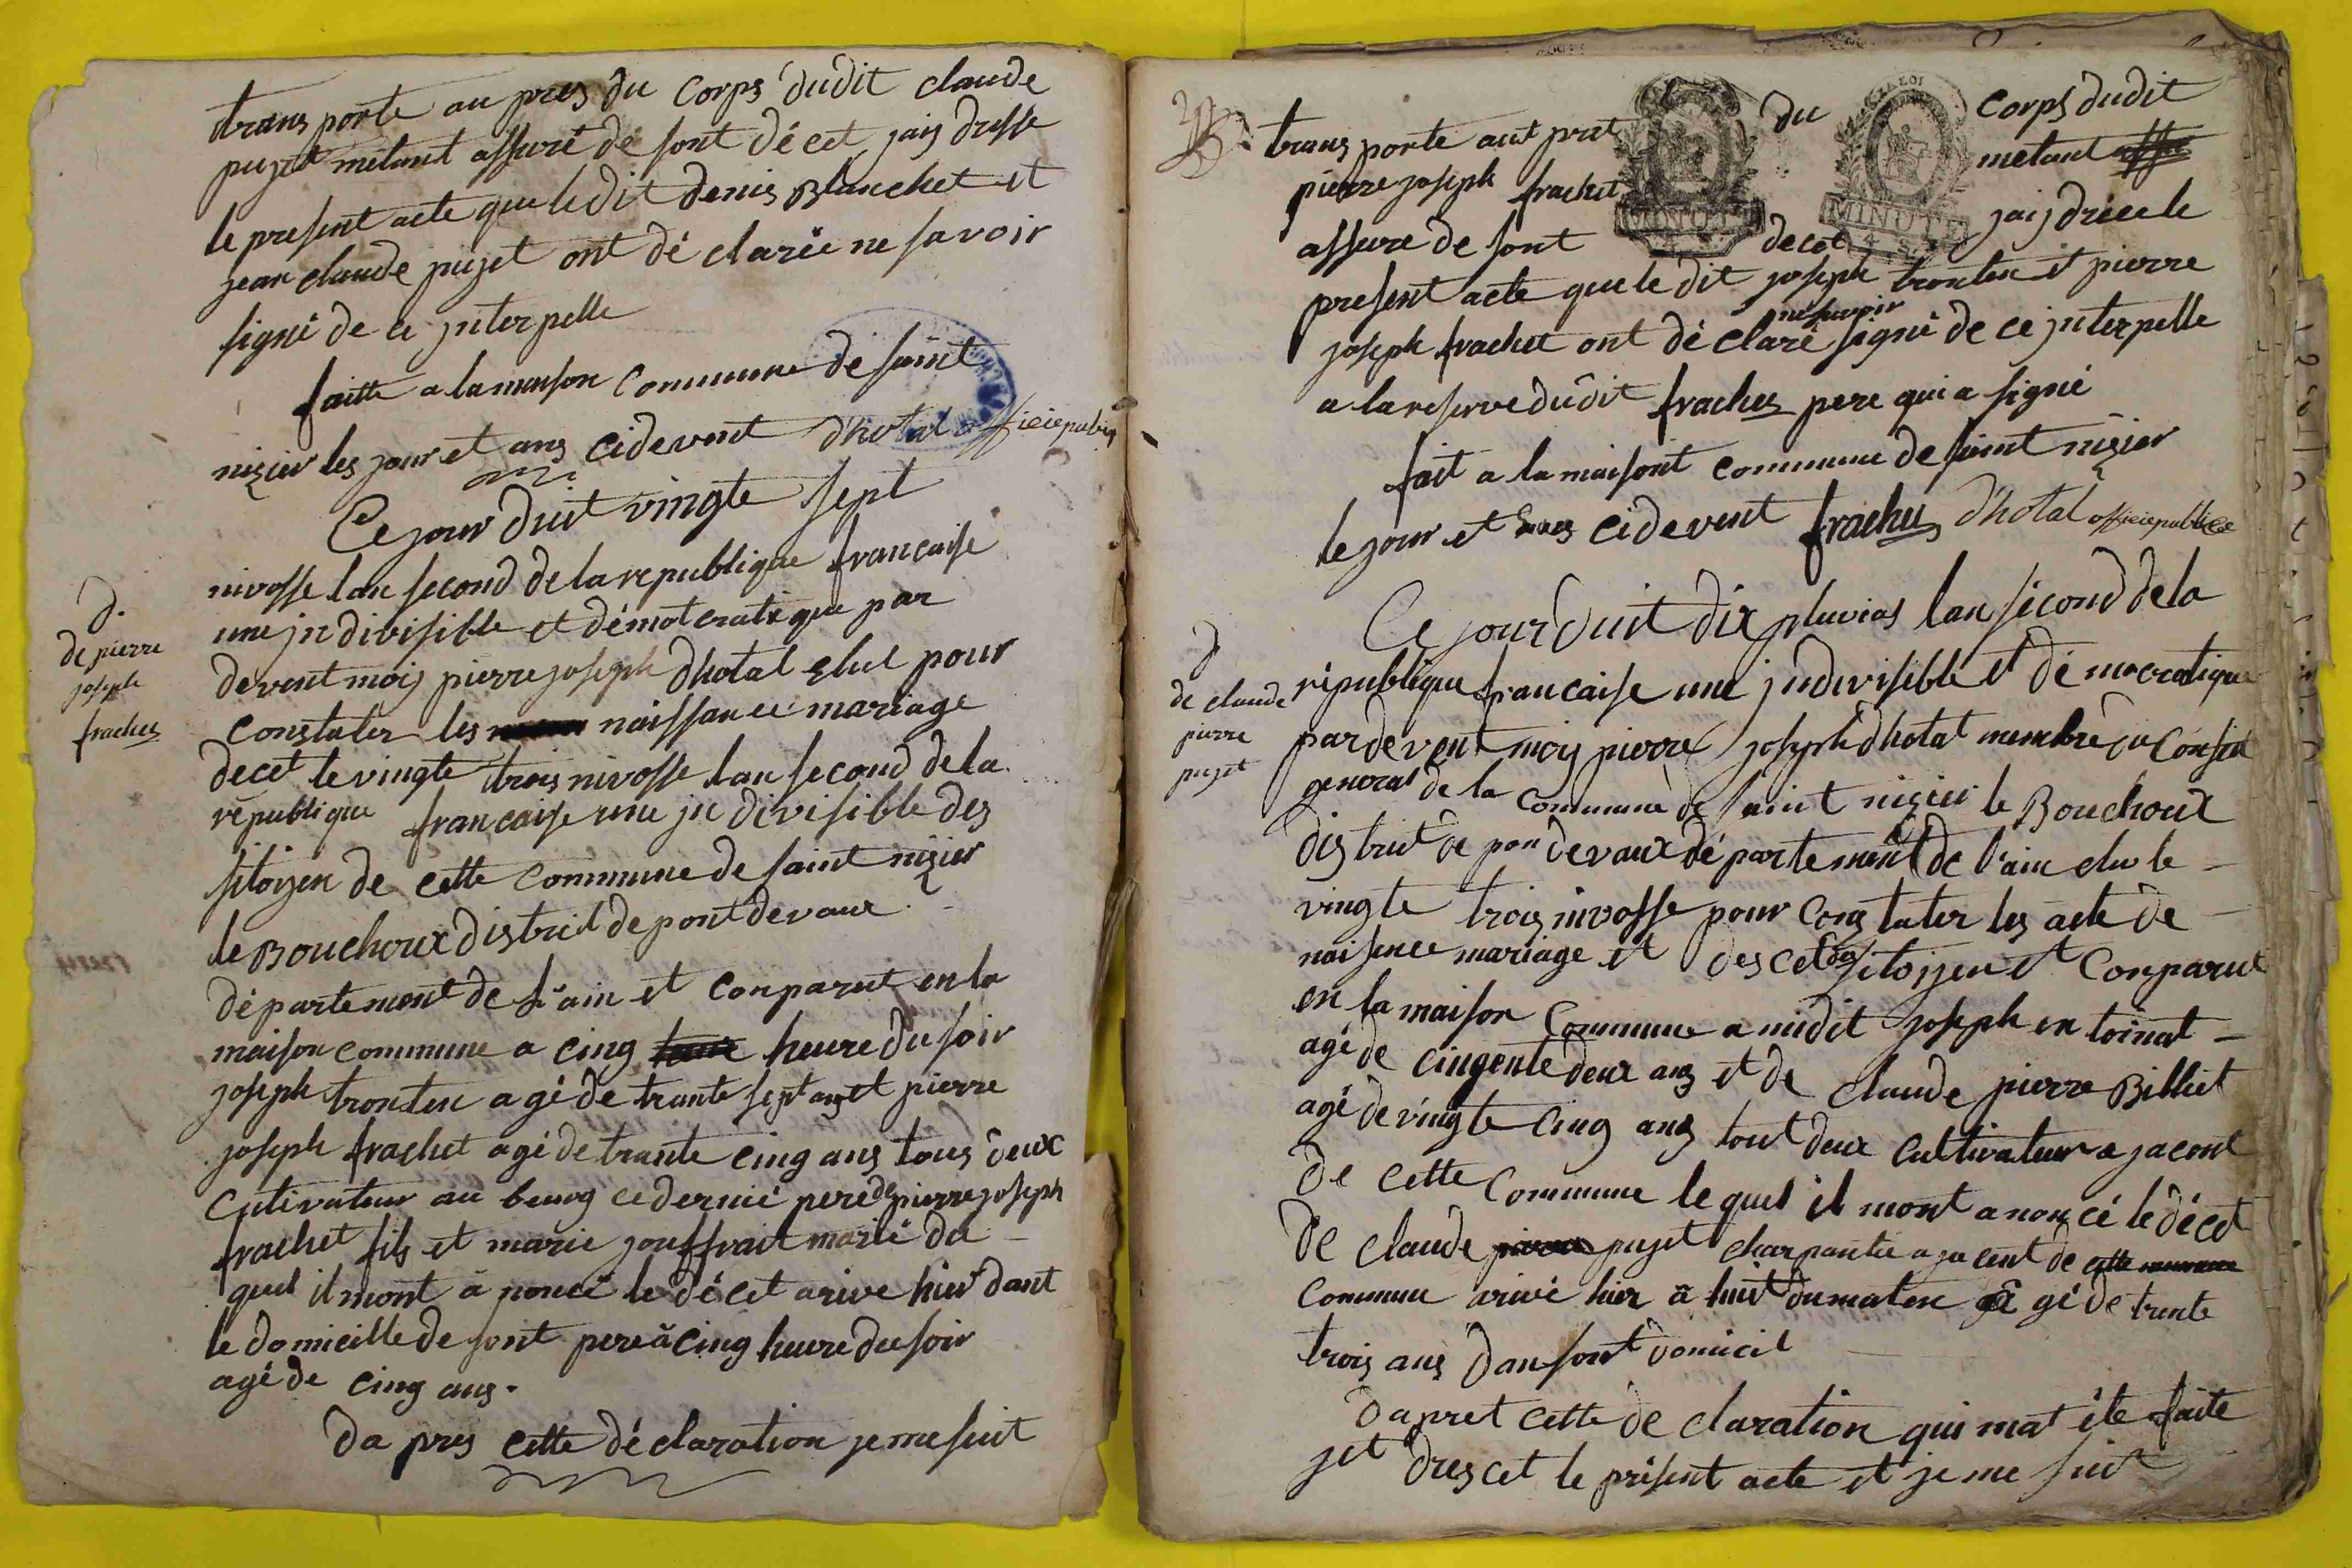 trans porte au pres du Corps dudit claude
pujet metant assuré de sont décet jais dresse
le present acte que ledit denis Blanchet et
jean claude pujet ont dé clarée ne savoir
signé de ce jnterpelle
faitte a la maison Commune de saint
nizier les jour et ans cidevent Dhotal officiepubliq
Ce jour duit vingte sept
nivosse lan second de la republique francaise
une jndivisible et démotcratique par
devent moij pierre joseph dhotal Elut pour
Constater les naissance mariage
decet le vingte trois nivosse lan second de la
république francaise une jn divisible des
sitoijen de cette Commune de saint nizier
le Bouchoux district de pont de vaux
département de L'ain et Conparut en la
maison commune a cinq heure du soir
joseph tronten a gé de trante sept ans et pierre
joseph frachet agé de trante cinq ans tous deux
Cutivateur au bourg ce dernié pere de pierre joseph
frachet fils et marie jouffrait marié du
quel il mont a noncé le décet arive hier dant
le domicille de sont pere à cinq heure du soir
agé de cinq ans.
Da pres cette déclaration je me suit
D.
de pierre
joseph
frachet
trans porte aut pret du Corps dudit
pierre joseph frachet metant
assure de sont decet jaij drece le
MINUTE MINUTE
present acte que le dit joseph tronten et pierre
ne savoir
joseph frachet ont dé claré signé de ce jnterpelle
a la reserve dudit frachet pere qui a signé
fait a la maisont commune de saint nizier
le jour et ans cidevent frachet Dhotal officiepublice
Ce jour duit dix pluvios lan second de la
république francaise une jndivisible et dé mocratique
par devent moij pierre joseph dhotal membre du Conseil
general de la Commune de saint nizier le Bouchoux
district de pon devaux département de l'ain elu le
vingte trois nivosse pour Constater les acte de
naisence mariage et descet des sitoijen et Conparut
en la maison Commune a midit joseph en toinat
agé de cinquente deux ans et de claude pierre Billiet
agé de vingte cinq ans tout deux Cultivateur a jacent
de cette Commune le quel il mont a non cé le décet
de claude pujet charpantié a ja cent de
Commune arivé hier à huit du maten a gé de trente
trois ans dan sont domicil
Dapret cette de claration qui mat été faite
jet drescet le présent acte et je me suit
D
de claude
pierre
pujet